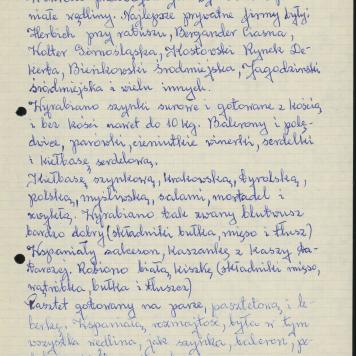 miałe wędliny. Najlepsze prywatne firmy były:
Herbich przy ratuszu, Bergander Ciasna,
Kolter Górnośląska, Kostowski Rynek De-
kerta, Bieńkowski Środmiejska, Jagodziński
Środmiejska i wielu innych.
Wyrabiano szynki surowe i gotowane z kością
i bez kości nawet do 10 kg. Balerony i polę-
dwice, parówki, cieniutkie winerki, serdelki
i kiełbasę serdelową.
Kiełbasę szynkową, krakowską, tyrolską,
polską, myśliwską, salami, mortadel i
zwykłą. Wyrabiano tak zwany blutwusz
bardzo dobry (składniki bułka, mięso i tłusz)
Wspaniały salceson, kaszankę z kaszy ta-
tarczej. Robiono białą kiszkę (składniki mięso,
wątróbka, bułka i tłuszcz)
Pasztet gotowany na parze, pasztetową i le-
berkę. Wspaniałą rozmajtość była w tym
wszystka wędlina, jak szynka, baleron, po-